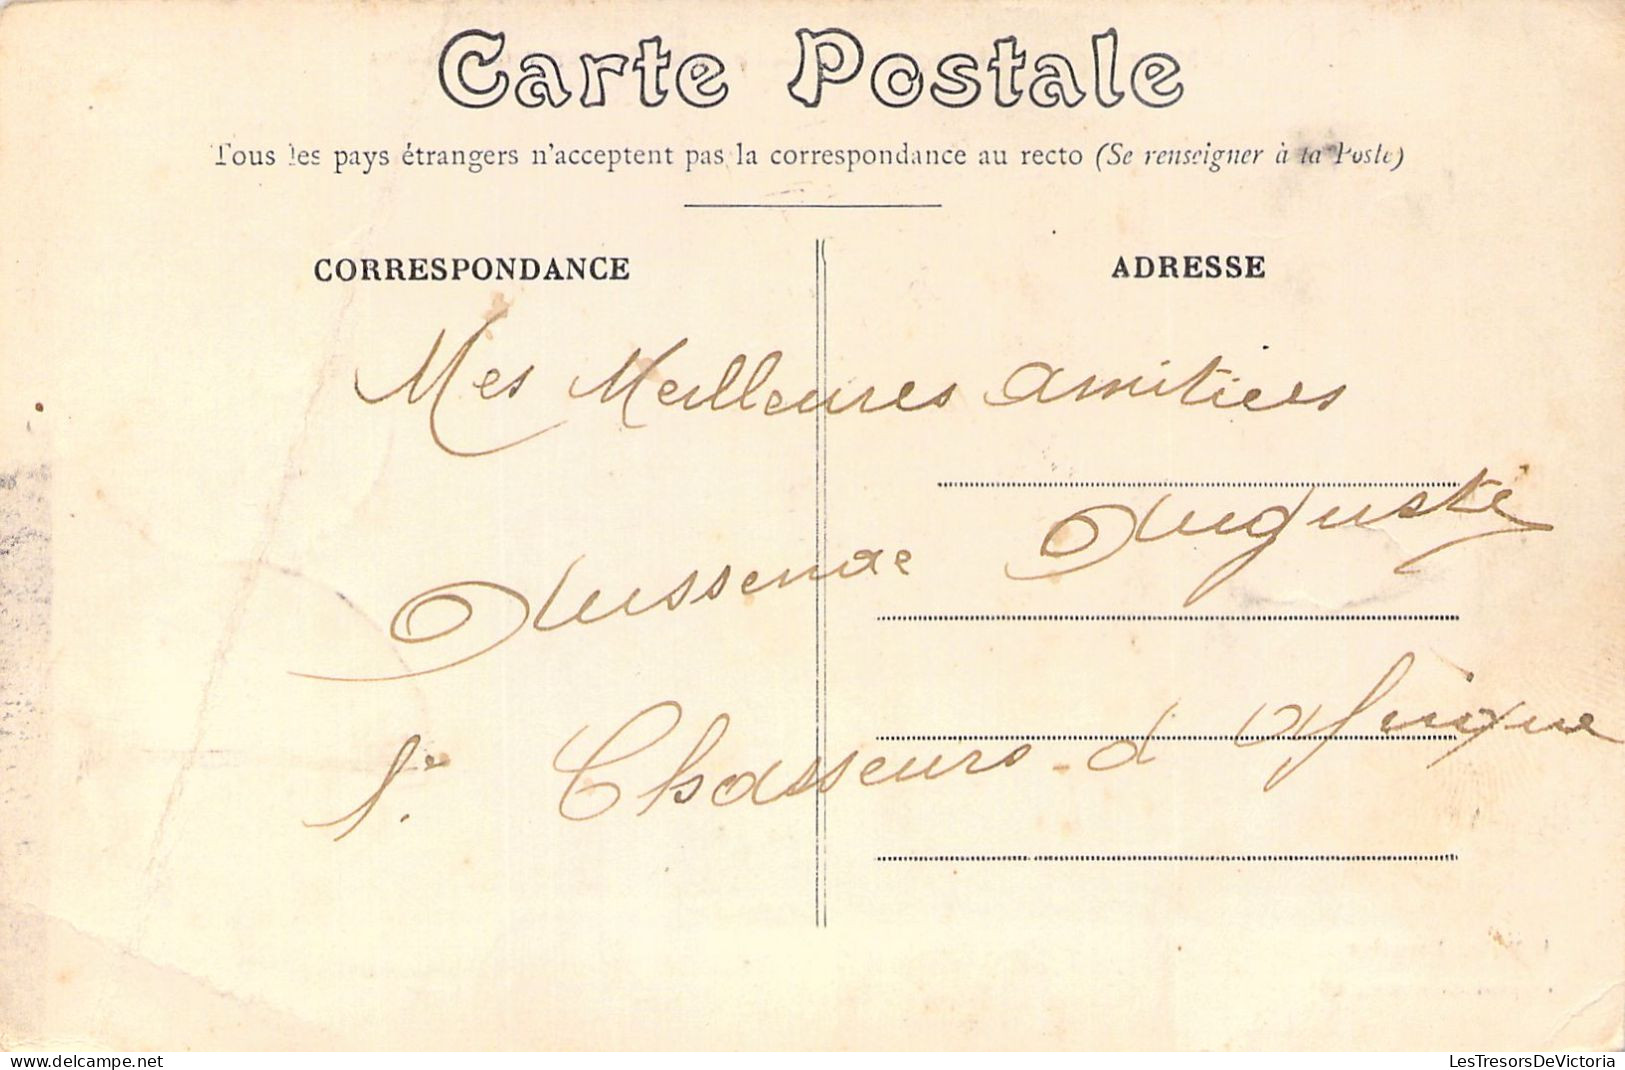 Carte Postale
Tous les pays étrangers n'acceptent pas la correspondance au recto (Se renseigner à la Poste)
CORRESPONDANCE
ADRESSE
Mes Meilleures amitiées
Auguste
1er Chasseurs d'Afrique
LesTresorsDeVictoria